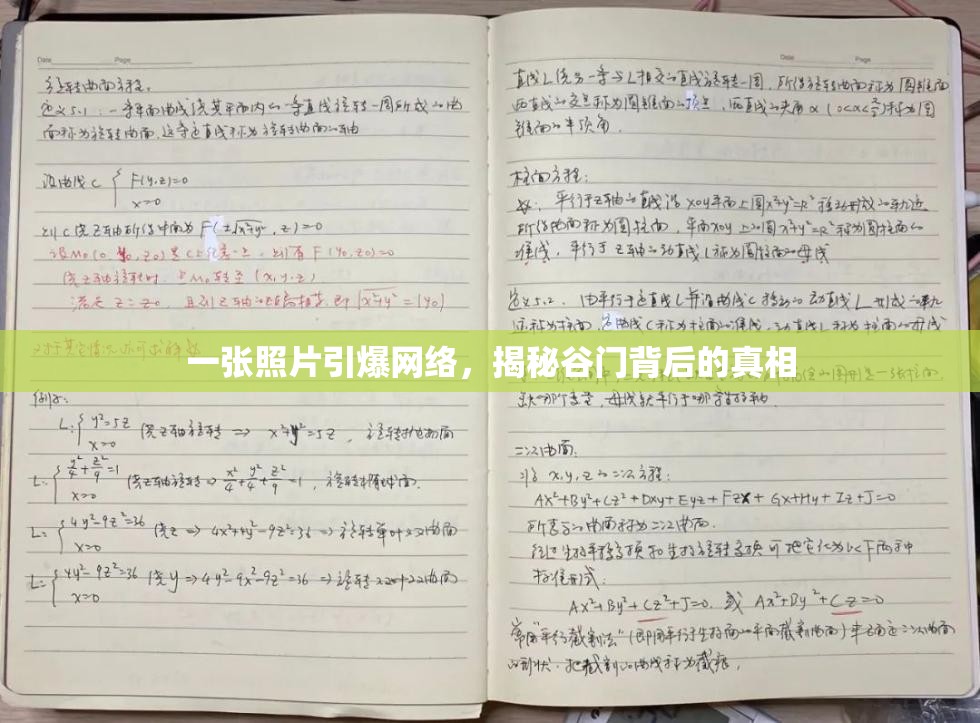 Date Page
旋转曲面方程。
定义5.1:一条平面曲线绕其平面内的一条直线旋转一周所成的曲
面称为旋转曲面,这条定直线称为旋转曲面的轴
设曲线C { F(y,z)=0
x=0
则C绕Z轴所得曲面为F(±√x²+y², z)=0
设M₀(0, y₀, z₀)是C上任意一点,则有F(y₀,z₀)=0
绕Z轴旋转时,点M₀转至(x,y,z)
满足 z=z₀, 且到Z轴的距离相等,即√x²+y²=|y₀|
例子:
L:{ y²=5z 绕z轴旋转 ⇒ x²+y²=5z, 旋转抛物面
x=0
L:{ y²/4+z²/9=1 绕z轴旋转 ⇒ x²/4+y²/4+z²/9=1, 旋转椭球面.
x=0
L:{ 4y²-9z²=36 绕z ⇒ 4x²+4y²-9z²=36 ⇒ 旋转单叶双曲面
x=0
L:{ 4y²-9z²=36 绕y ⇒ 4y²-9x²-9z²=36 ⇒ 旋转双叶双曲面
x=0
一张照片引爆网络,揭秘谷门背后的真相
Date Page
直线L绕另一条与L相交的直线旋转一周,所得旋转曲面称为圆锥面
两直线的交点称为圆锥面的顶点,两直线的夹角α(0<α<π/2)称为圆
锥面的半顶角.
柱面方程:
平行于z轴的直线沿xoy平面上圆x²+y²=R²移动形成的轨迹
所得曲面称为圆柱面,平面xoy上的圆x²+y²=R²称为圆柱面的
准线,平行于z轴的动直线L称为圆柱面的母线
定义5.2. 由平行于定直线L并沿曲线C移动的动直线L形成的轨
缺哪个变量,母线就平行于哪条坐标轴.
二次曲面.
x,y,z的二次方程:
Ax²+By²+Cz²+Dxy+Eyz+Fzx+Gx+Hy+Iz+J=0
所表示的曲面称为二次曲面.
经过坐标平移变换和坐标旋转变换可把它化为以下两种
标准形式:
Ax²+By²+Cz²+J=0. 或 Ax²+By²+Cz=0
常用"平行截割法"(即用平行于坐标面的平面截割曲面)来确定二次曲面
的形状.把截割的曲线称为截痕.